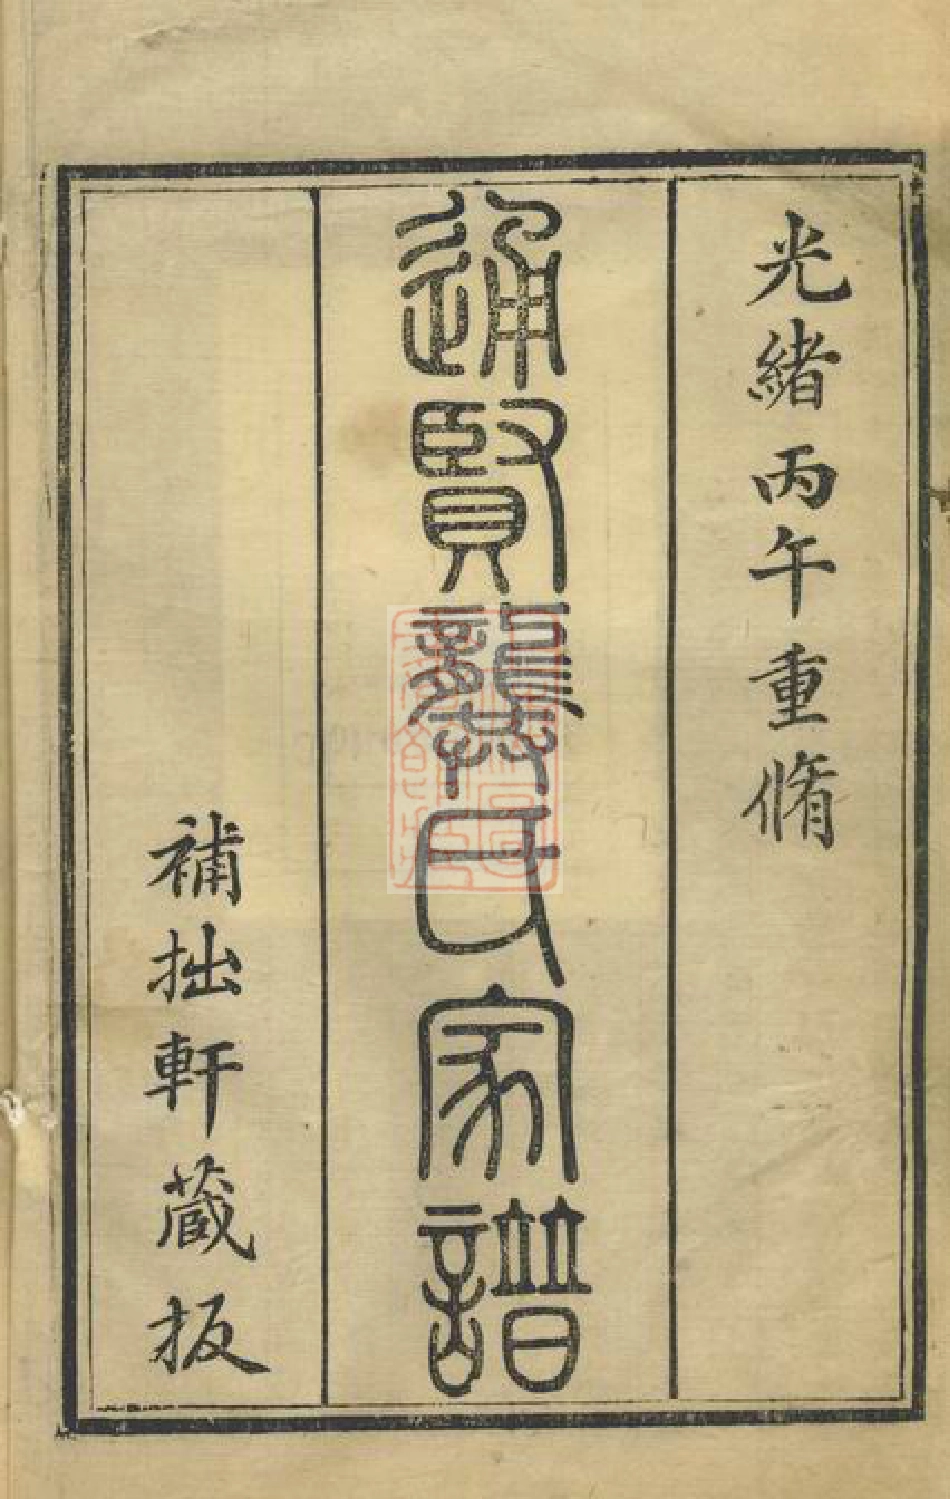 光緒丙午重脩
通賢龔氏家譜
補拙軒藏板